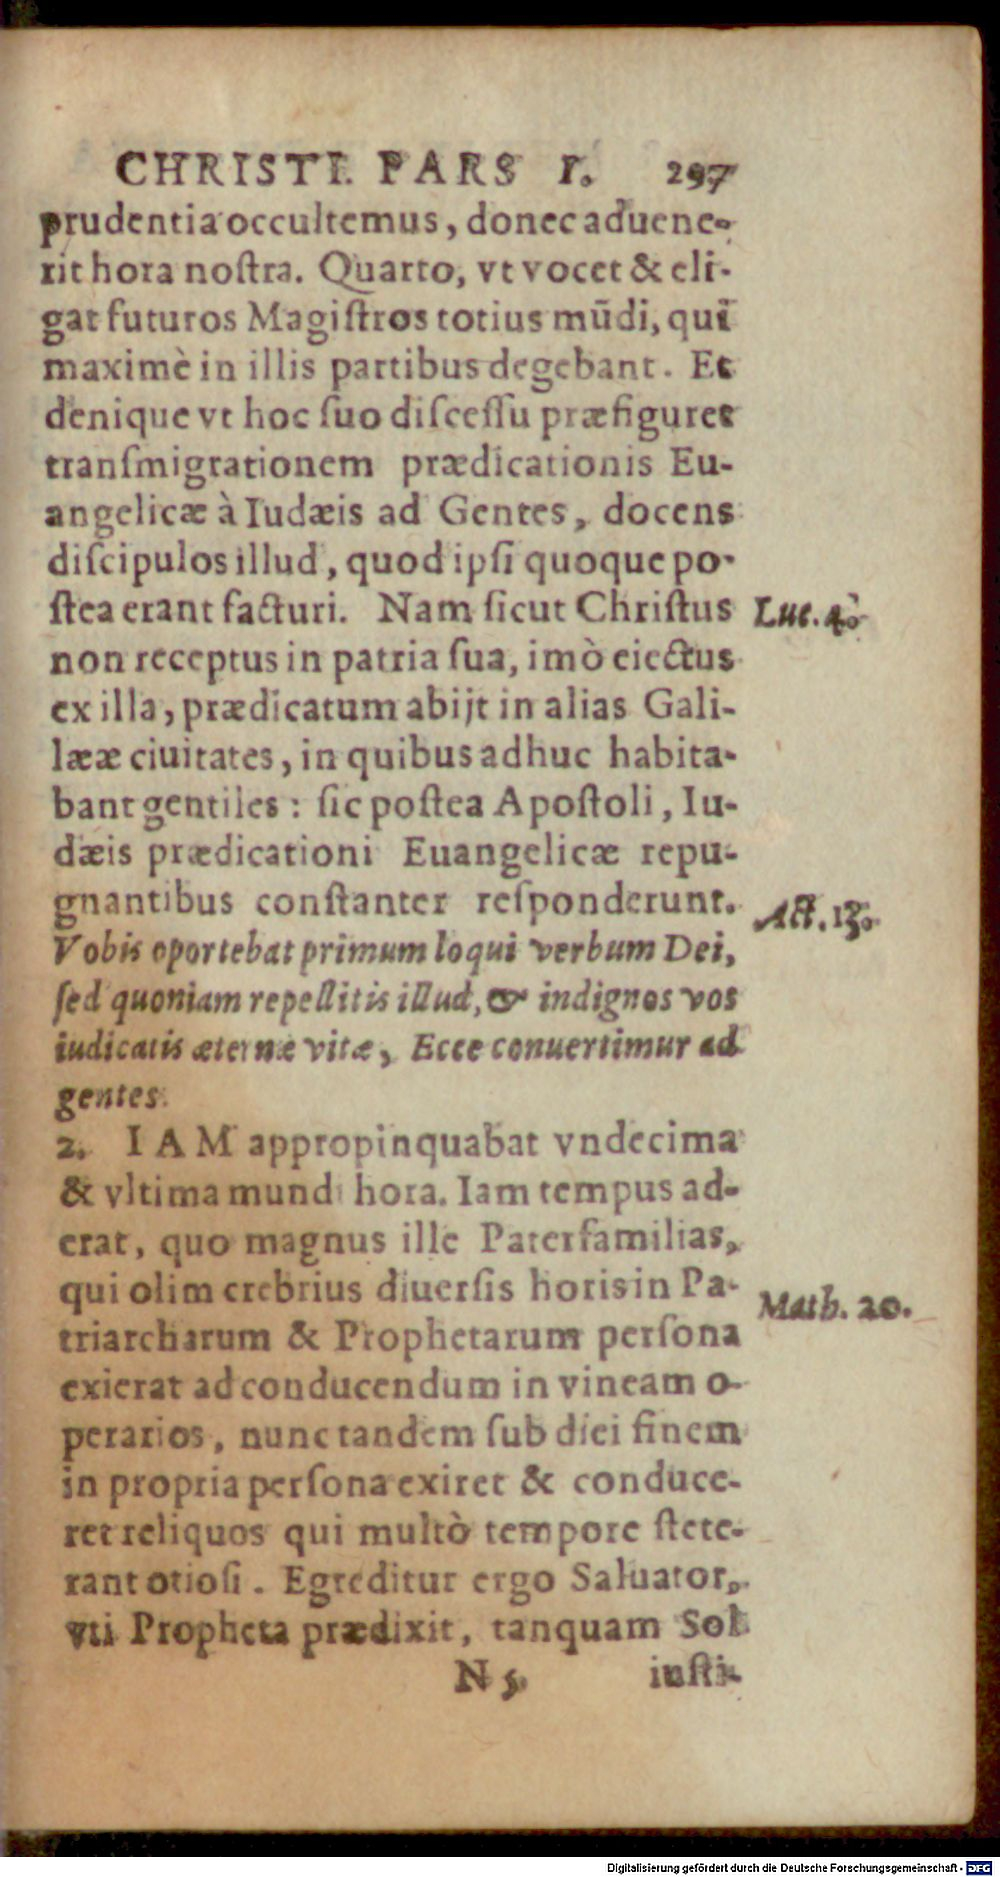 CHRISTI. PARS I. 297
prudentia occultemus, donec aduene-
rit hora noſtra. Quarto, vt vocet & eli-
gat futuros Magiſtros totius mūdi, qui
maximè in illis partibus degebant. Et
denique vt hoc ſuo diſceſſu præfiguret
tranſmigrationem prædicationis Eu-
angelicæ à Iudæis ad Gentes, docens
diſcipulos illud, quod ipſi quoque po-
ſtea erant facturi. Nam ſicut Chriſtus
Luc. 4.
non receptus in patria ſua, imò eiectus
ex illa, prædicatum abijt in alias Gali-
lææ ciuitates, in quibus adhuc habita-
bant gentiles: ſic poſtea Apoſtoli, Iu-
dæis prædicationi Euangelicæ repu-
gnantibus conſtanter reſponderunt.
Act. 13.
Vobis oportebat primum loqui verbum Dei,
ſed quoniam repellitis illud, & indignos vos
iudicatis æternæ vitæ, Ecce conuertimur ad
gentes.
2. IAM appropinquabat vndecima
& vltima mundi hora. Iam tempus ad-
erat, quo magnus ille Paterfamilias,
qui olim crebrius diuerſis horis in Pa-
Math. 20.
triarcharum & Prophetarum perſona
exierat ad conducendum in vineam o-
perarios, nunc tandem ſub diei finem
in propria perſona exiret & conduce-
ret reliquos qui multò tempore ſtete-
rant otioſi. Egreditur ergo Saluator,
vti Propheta prædixit, tanquam Sol
N 5 iuſti-
Digitalisierung gefördert durch die Deutsche Forschungsgemeinschaft - DFG